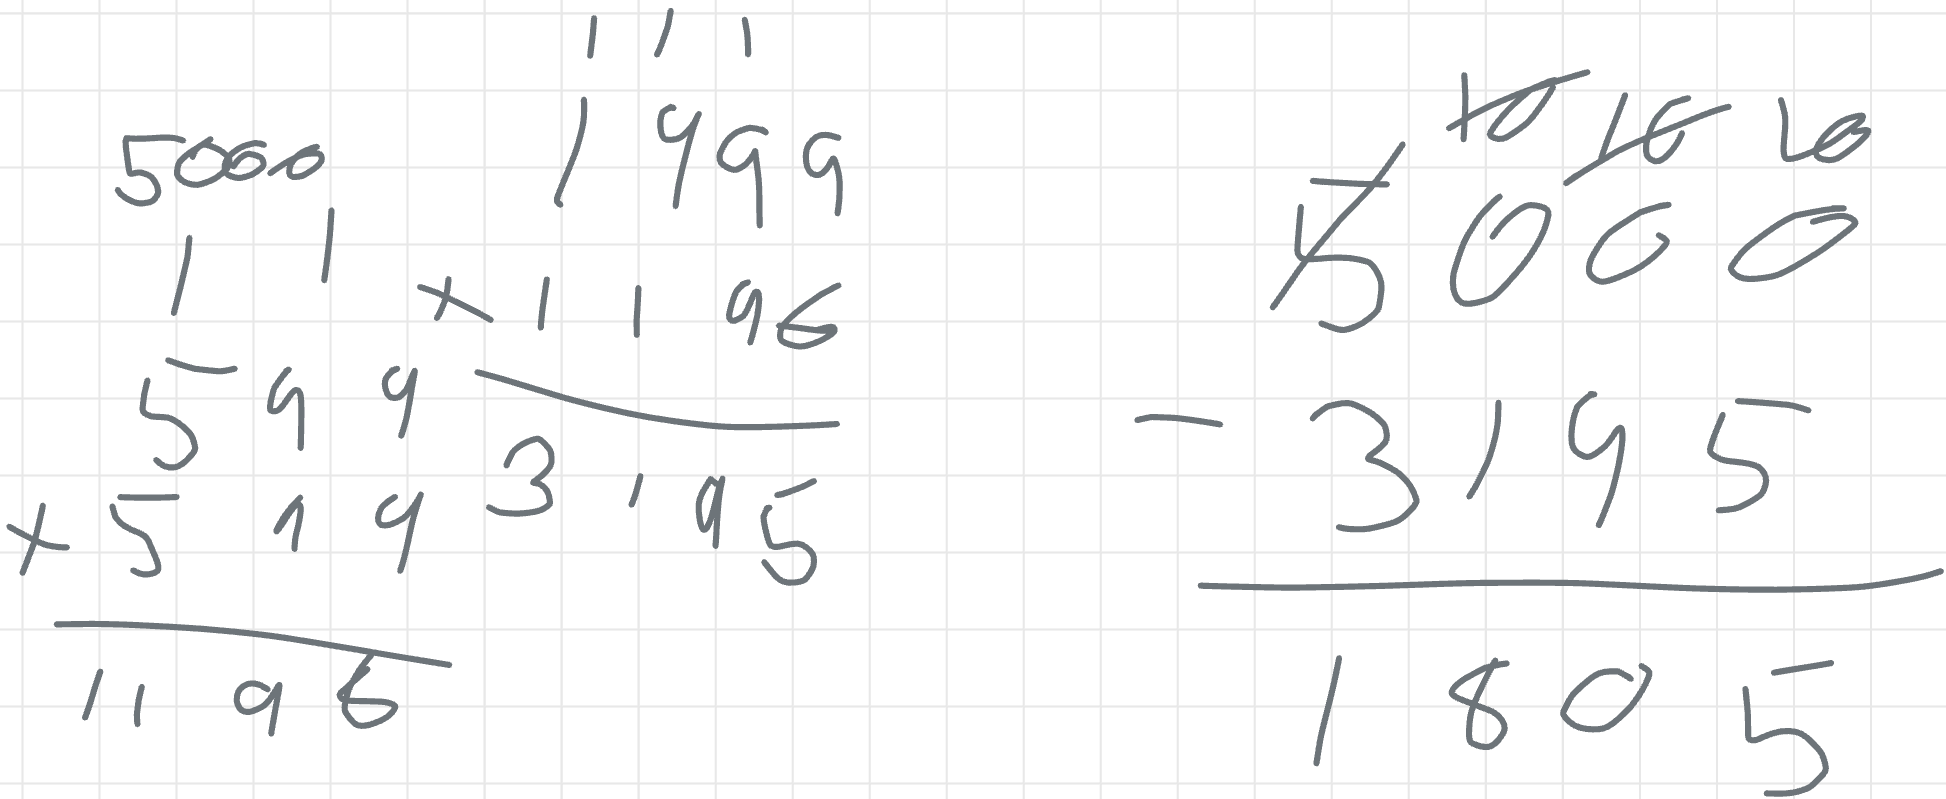 5000
1 1
599
+ 599
1196
1 1 1
1999
+ 1196
3195
10 10 10
5000
- 3195
1805